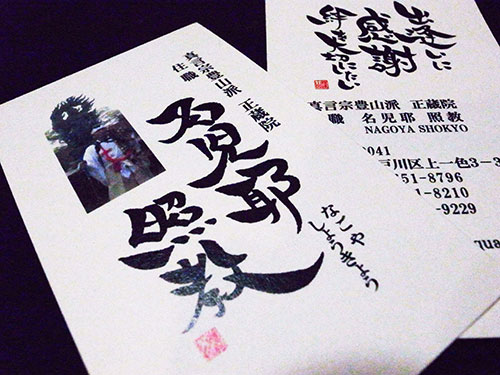 真言宗豊山派 正蔵院
住職
名児耶
照教
なごや
しょうきょう
出逢いに
感謝
絆を大切にしたい
真言宗豊山派 正蔵院
職 名児耶 照教
NAGOYA SHOKYO
041
戸川区上一色3－3
51-8796
-8210
-9229